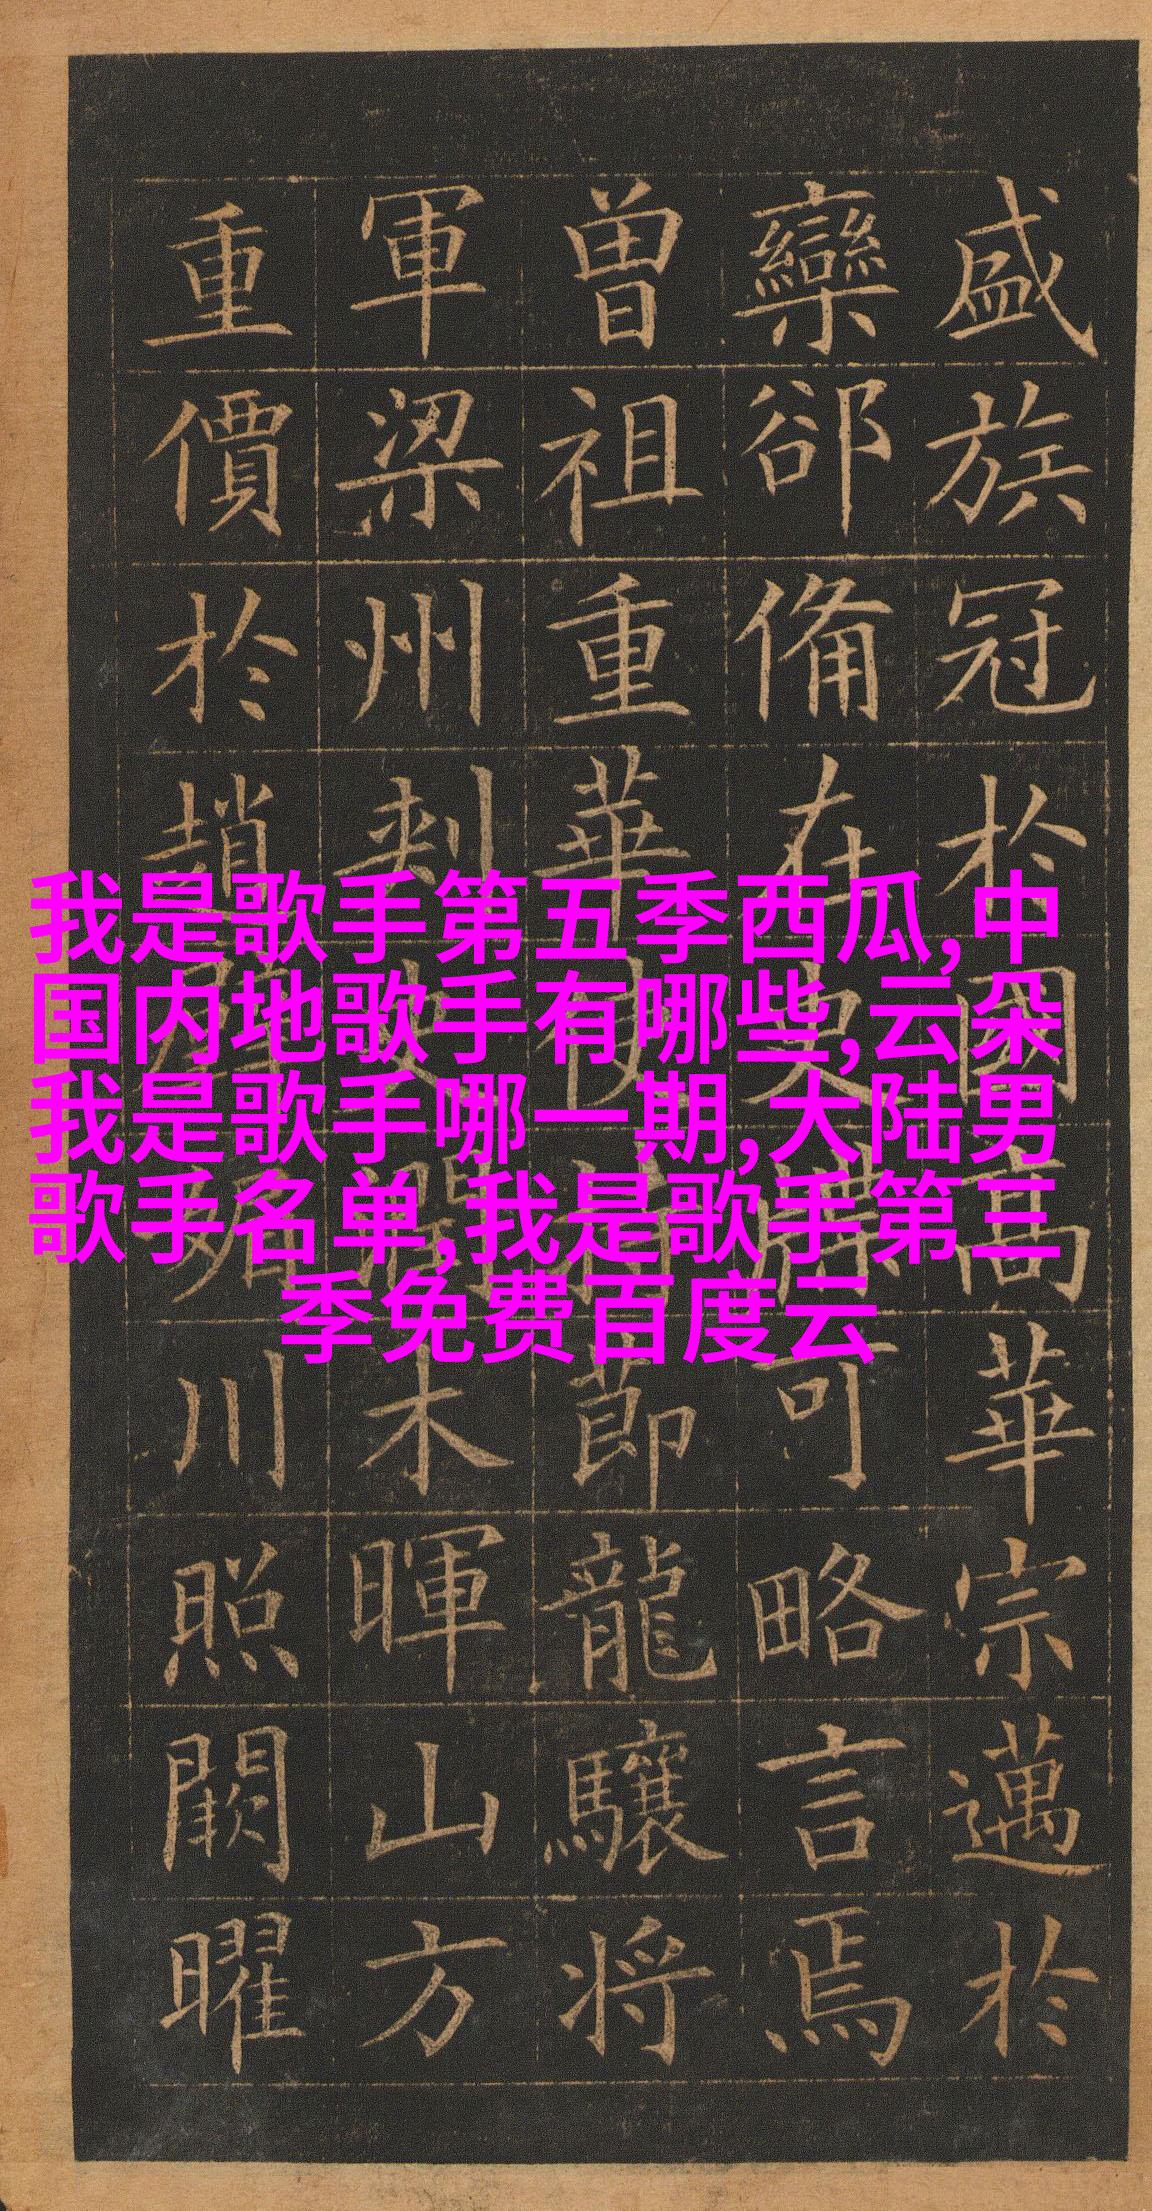 盛族冠於國高華宗邁於
欒郤備在史牒可略言焉
曾祖重華使持節龍驤将
軍梁州刺史潤木暉山方
重價於趙璧媚川照闕曜
我是歌手第五季西瓜,中
国内地歌手有哪些,云朵
我是歌手哪一期,大陆男
歌手名单,我是歌手第三
季免费百度云